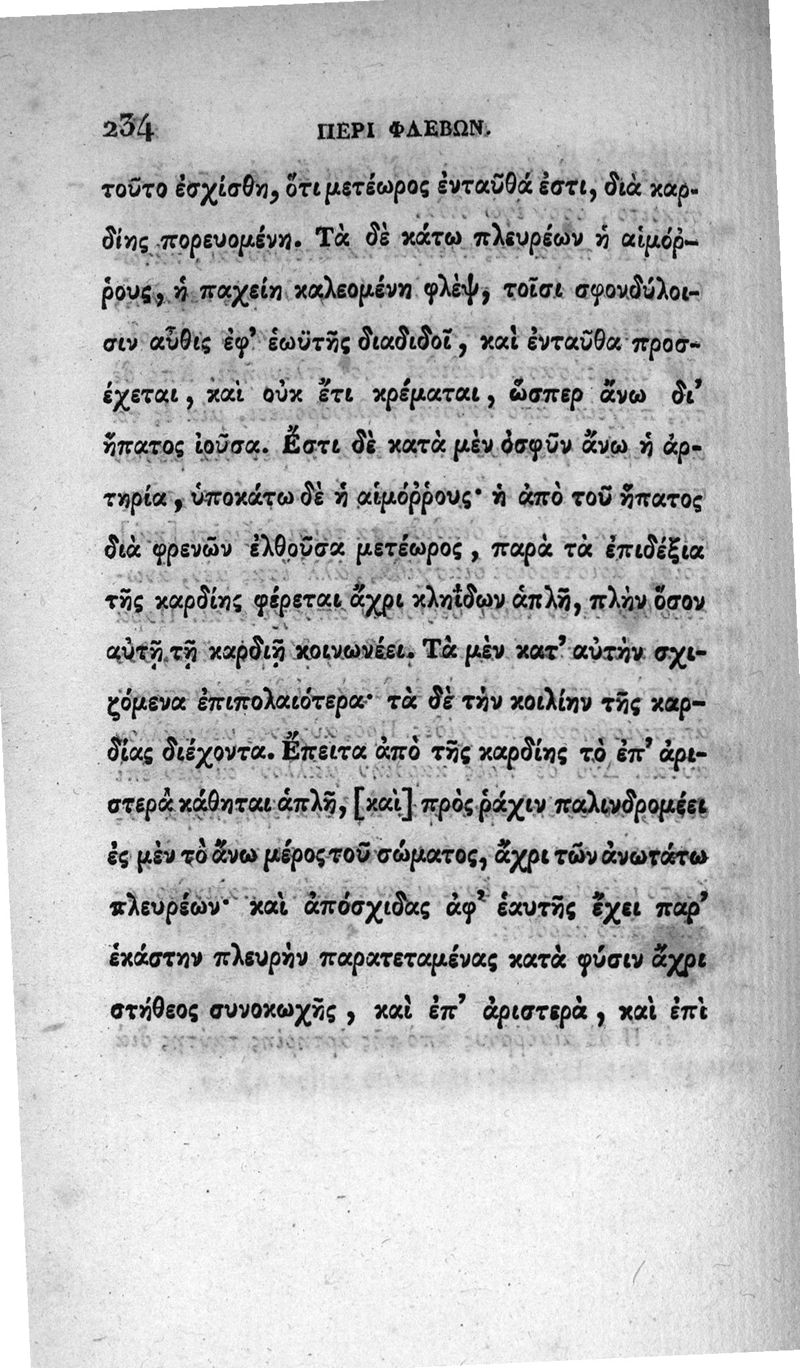 234 ΠΕΡΙ ΦΛΕΒΩΝ.
τοῦτο ἐσχίσθη, ὅτι μετέωρος ἐνταῦθά ἐστι, διὰ καρ-
δίης πορευομένη. Τὰ δὲ κάτω πλευρέων ἡ αἱμόῤ-
ῥους, ἡ παχείη καλεομένη φλὲψ, τοῖσι σφονδύλοι-
σιν αὖθις ἐφ’ ἑωϋτῆς διαδιδοῖ, καὶ ἐνταῦθα προσ-
έχεται, καὶ οὐκ ἔτι κρέμαται, ὥσπερ ἄνω δι’
ἥπατος ἰοῦσα. Ἔστι δὲ κατὰ μὲν ὀσφῦν ἄνω ἡ ἀρ-
τηρία, ὑποκάτω δὲ ἡ αἱμόῤῥους· ἡ ἀπὸ τοῦ ἥπατος
διὰ φρενῶν ἐλθοῦσα μετέωρος, παρὰ τὰ ἐπιδέξια
τῆς καρδίης φέρεται ἄχρι κληΐδων ἁπλῆ, πλὴν ὅσον
αὐτῇ τῇ καρδιῇ κοινωνέει. Τὰ μὲν κατ’ αὐτὴν σχι-
ζόμενα ἐπιπολαιότερα· τὰ δὲ τὴν κοιλίην τῆς καρ-
δίας διέχοντα. Ἔπειτα ἀπὸ τῆς καρδίης τὸ ἐπ’ ἀρι-
στερὰ κάθηται ἁπλῆ, [καὶ] πρὸς ῥάχιν παλινδρομέει
ἐς μὲν τὸ ἄνω μέρος τοῦ σώματος, ἄχρι τῶν ἀνωτάτω
πλευρέων· καὶ ἀπόσχιδας ἀφ’ ἑαυτῆς ἔχει παρ’
ἑκάστην πλευρὴν παρατεταμένας κατὰ φύσιν ἄχρι
στήθεος συνοκωχῆς, καὶ ἐπ’ ἀριστερὰ, καὶ ἐπὶ